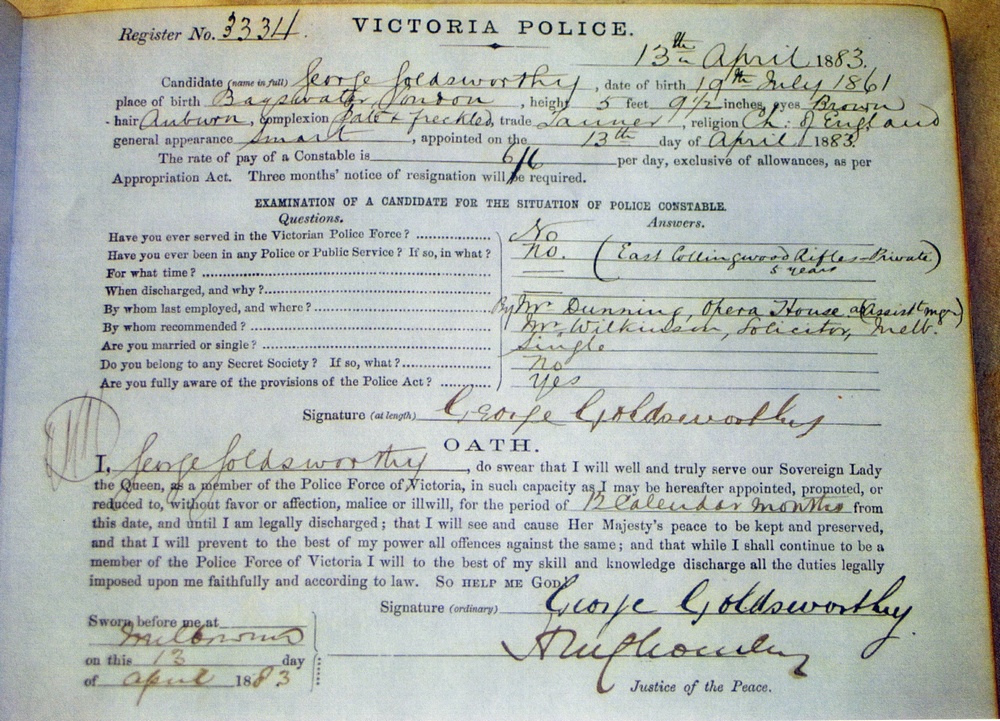 Register No. 3334. VICTORIA POLICE.
13th April 1883.
Candidate (name in full) George Goldsworthy, date of birth 19th July 1861
place of birth Bayswater, London, height 5 feet 9½ inches, eyes Brown
hair Auburn, complexion pale & freckled, trade Tanner, religion Ch: of England
general appearance Smart, appointed on the 13th day of April 1883.
The rate of pay of a Constable is 6/6 per day, exclusive of allowances, as per
Appropriation Act. Three months' notice of resignation will be required.
EXAMINATION OF A CANDIDATE FOR THE SITUATION OF POLICE CONSTABLE.
Questions. Answers.
Have you ever served in the Victorian Police Force? No
Have you ever been in any Police or Public Service? If so, in what? No. (East Collingwood Rifles - Private)
For what time? 5 years
When discharged, and why?
By whom last employed, and where? By Mr Dunning, Opera House (Assist mgr)
By whom recommended? Mr Wilkinson, Solicitor, Melb.
Are you married or single? Single
Do you belong to any Secret Society? If so, what? No
Are you fully aware of the provisions of the Police Act? Yes
Signature (at length) George Goldsworthy
OATH.
I, George Goldsworthy, do swear that I will well and truly serve our Sovereign Lady
the Queen, as a member of the Police Force of Victoria, in such capacity as I may be hereafter appointed, promoted, or
reduced to, without favor or affection, malice or illwill, for the period of Calendar months from
this date, and until I am legally discharged; that I will see and cause Her Majesty's peace to be kept and preserved,
and that I will prevent to the best of my power all offences against the same; and that while I shall continue to be a
member of the Police Force of Victoria I will to the best of my skill and knowledge discharge all the duties legally
imposed upon me faithfully and according to law. SO HELP ME GOD.
Signature (ordinary) George Goldsworthy
Sworn before me at
Melbourne
on this 13 day
of April 1883
Justice of the Peace.